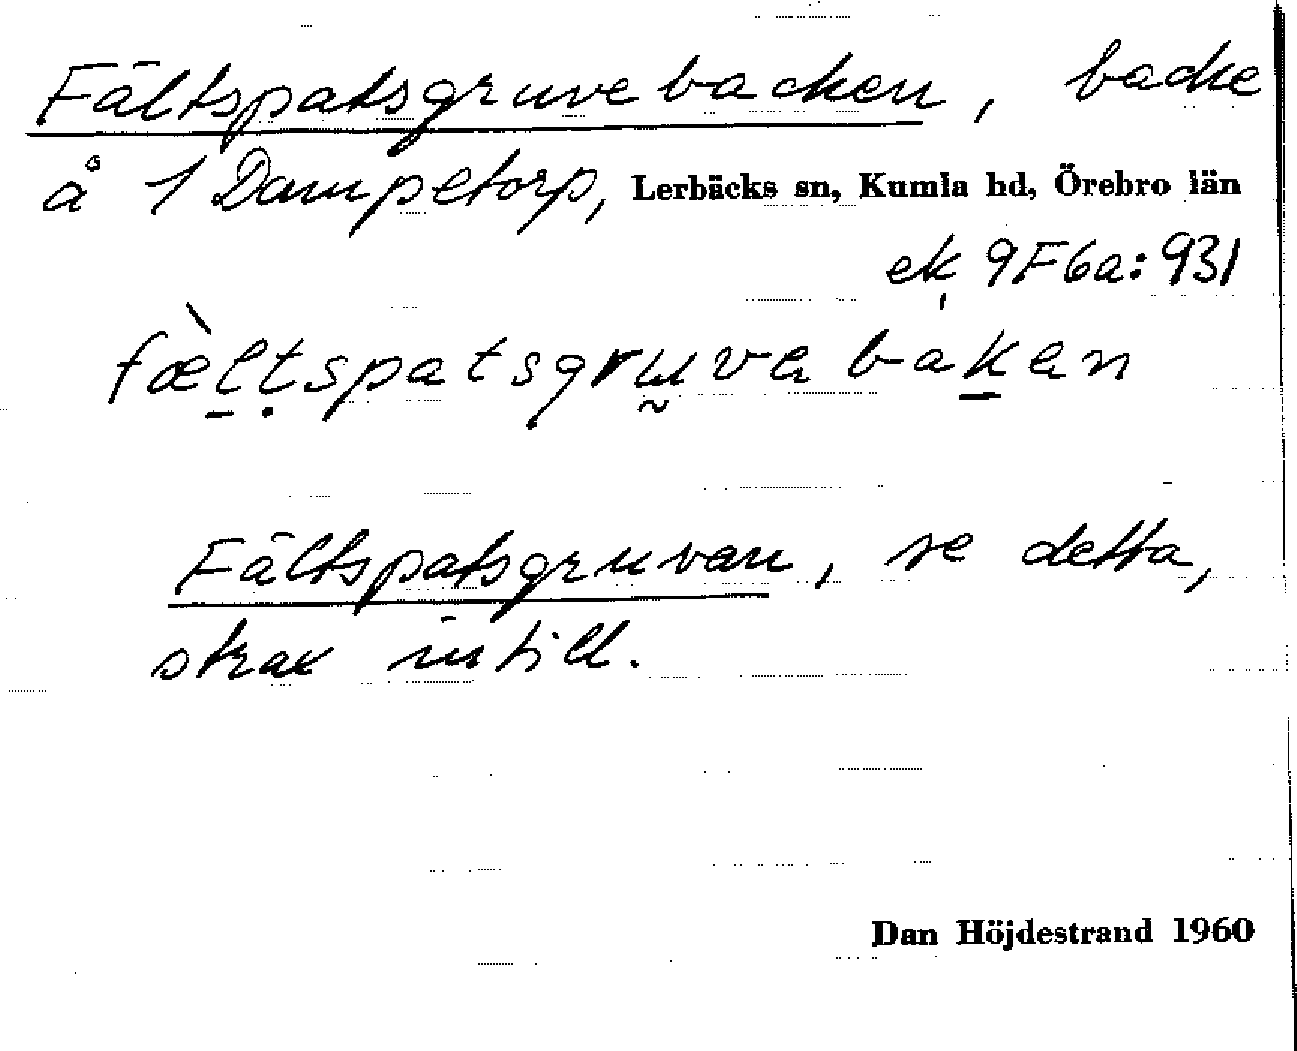 Fältspatsgruvebacken, backe
å 1 Dampetorp, Lerbäcks sn, Kumla hd, Örebro län
ek 9F6a:931
fæ̀ltspatsgruvabakan
Fältspatsgruvan, se detta,
strax intill.
Dan Höjdestrand 1960